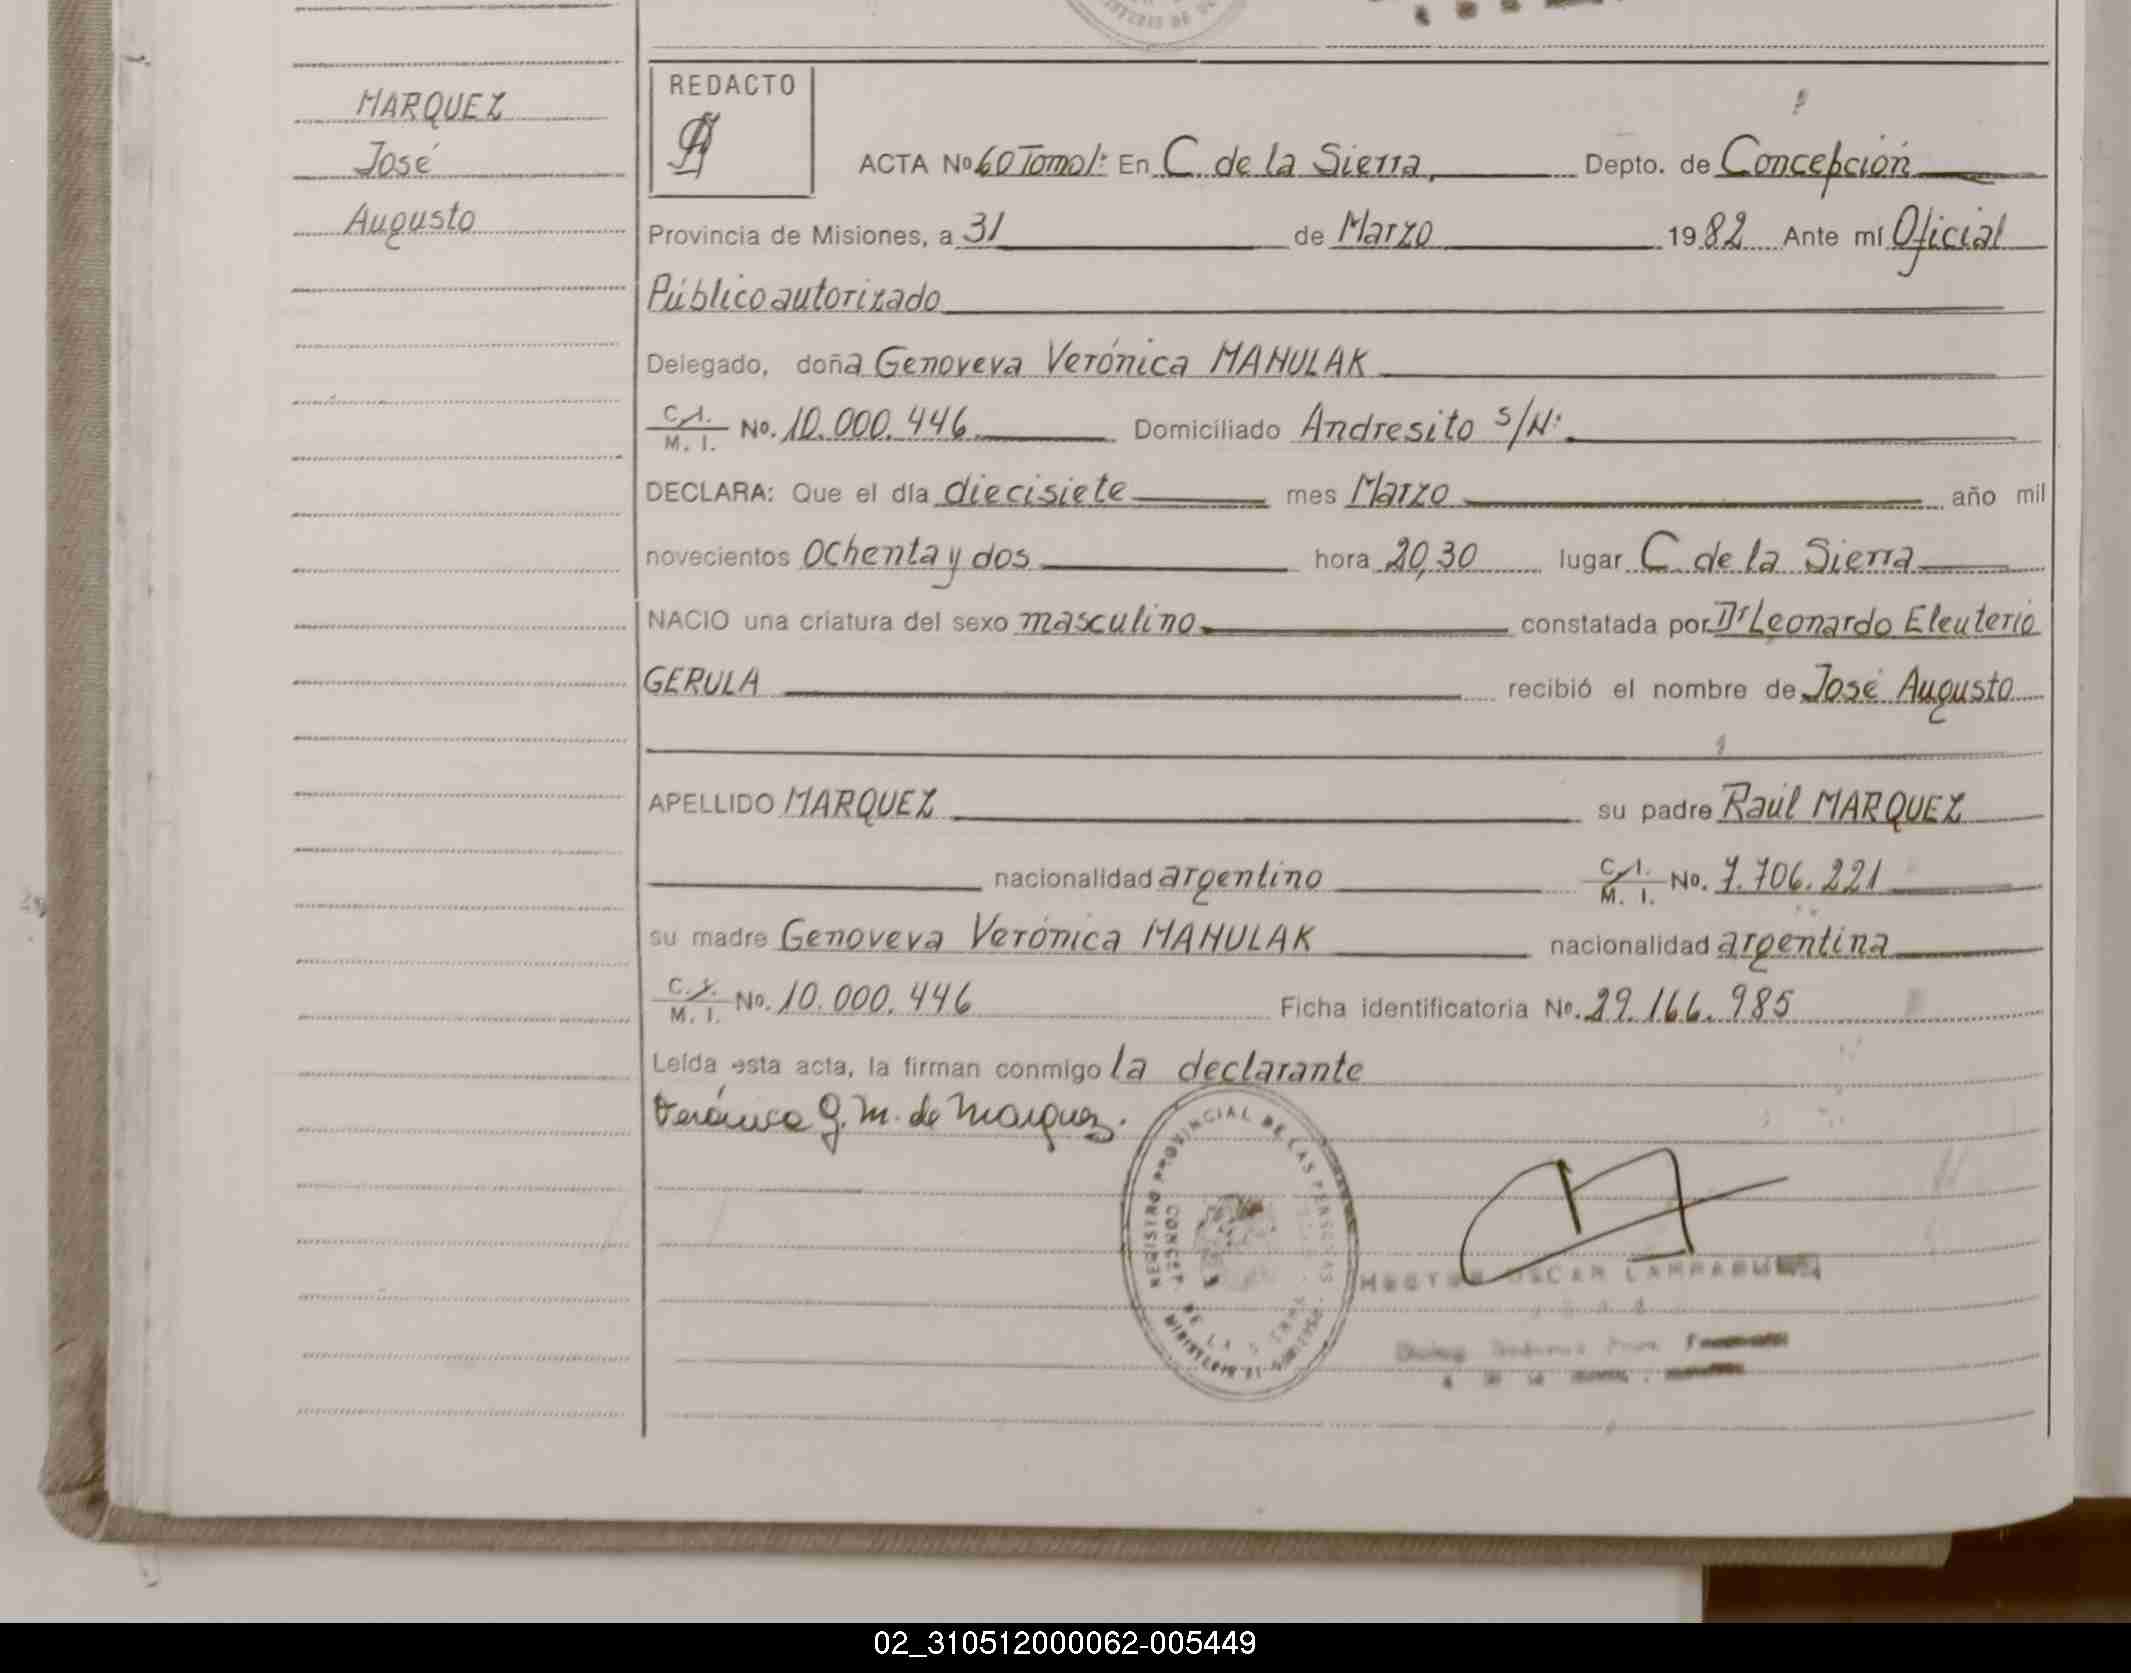 MARQUEZ
José
Augusto
REDACTO
ACTA Nº 60 Tomo 1º En C. de la Sierra, Depto. de Concepción
Provincia de Misiones, a 31 de Marzo 1982 Ante mí Oficial
Público autorizado
Delegado, doña Genoveva Verónica MAHULAK
C.I. M. I. Nº. 10.000.446 Domiciliado Andresito S/N:
DECLARA: Que el día diecisiete mes Marzo año mil
novecientos ochenta y dos hora 20,30 lugar C. de la Sierra
NACIO una criatura del sexo masculino constatada por Dr Leonardo Eleuterio
GERULA recibió el nombre de José Augusto
APELLIDO MARQUEZ su padre Raúl MARQUEZ
nacionalidad argentino C.I. M. I. Nº. 7.706.221
su madre Genoveva Verónica MAHULAK nacionalidad argentina
C.I. M. I. Nº. 10.000.446 Ficha identificatoria Nº. 29.166.985
Leída esta acta, la firman conmigo la declarante
Verónica G. M. de Marquez.
REGISTRO PROVINCIAL DE LAS PERSONAS
CONCEP. DE LA SIERRA
OSCAR
02_310512000062-005449